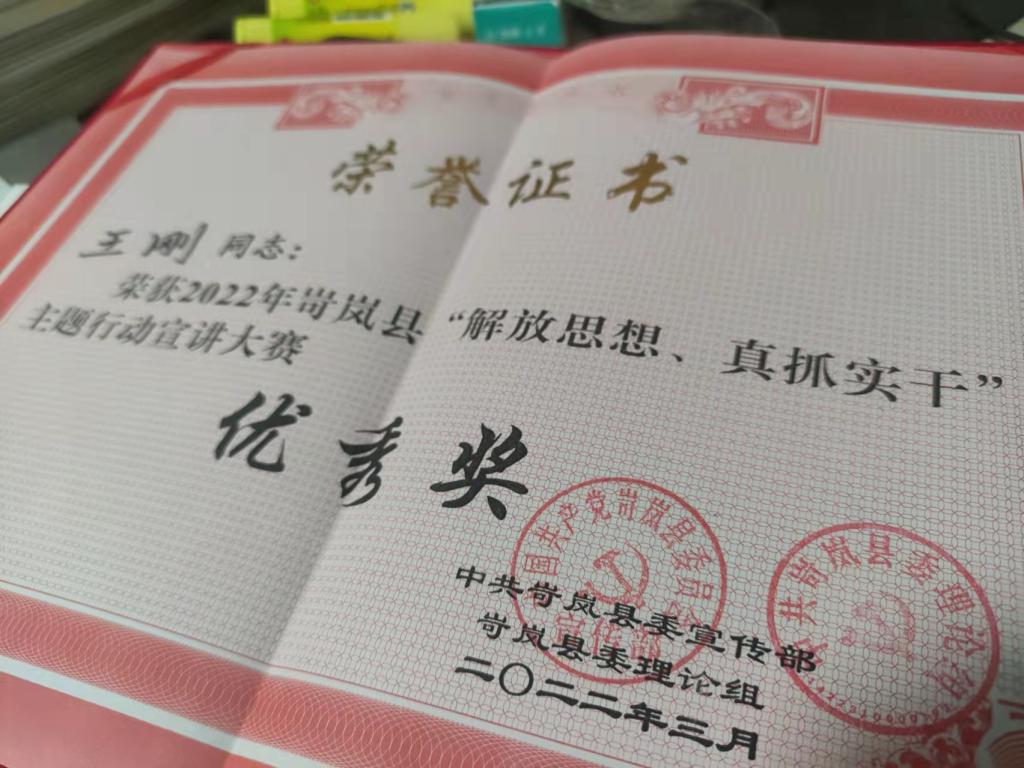 荣誉证书
王刚 同志：
荣获2022年岢岚县“解放思想、真抓实干”
主题行动宣讲大赛
优秀奖
国共产党岢岚县委员会
宣传部
中共岢岚县委理论组
中共岢岚县委宣传部
岢岚县委理论组
二〇二二年三月